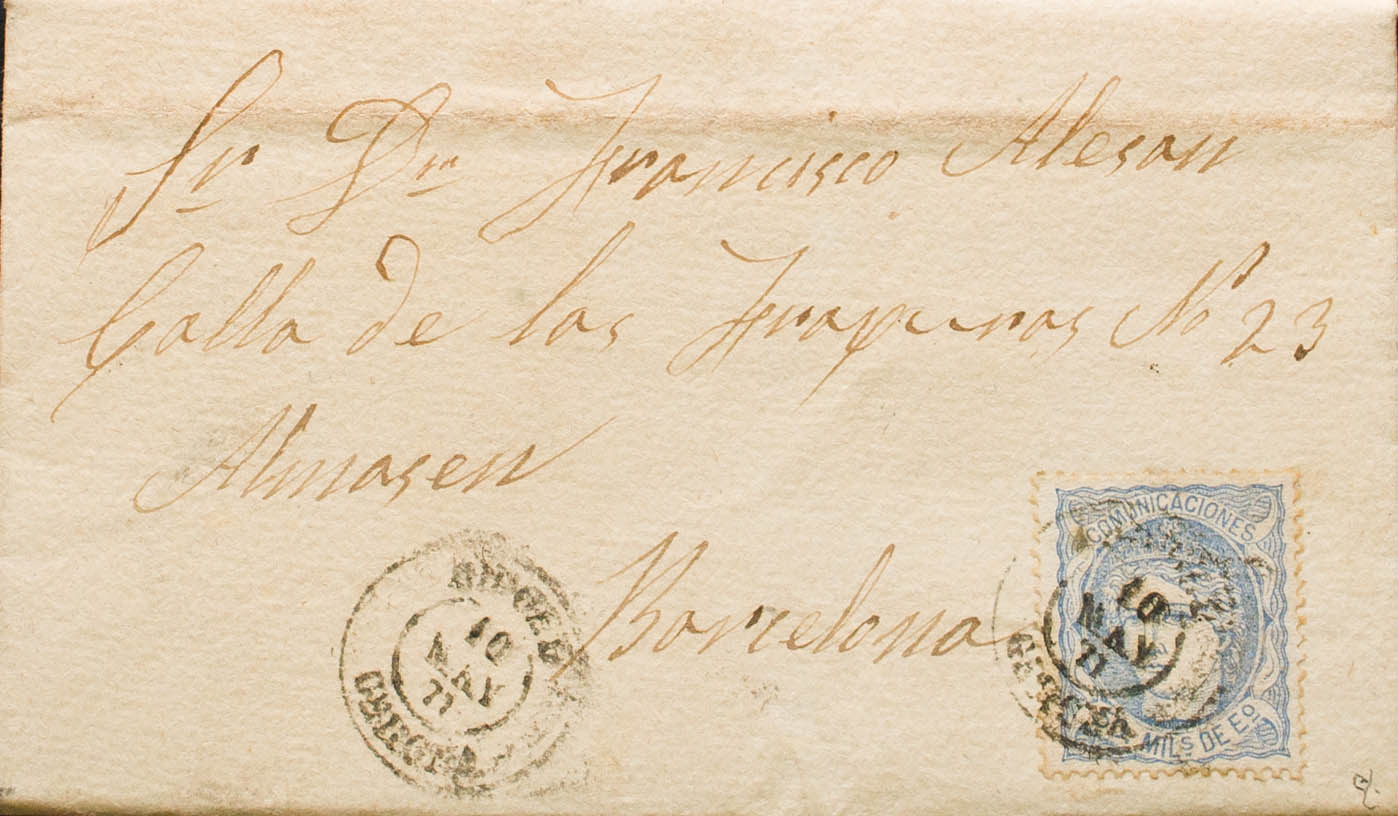 Sr Dn Francisco Alesan
Calla de las Trapuras No 23
Almasen
Barcelona
COMUNICACIONES
10
MAY
71
MILS DE Eo.
10
MAY
71
GERONA